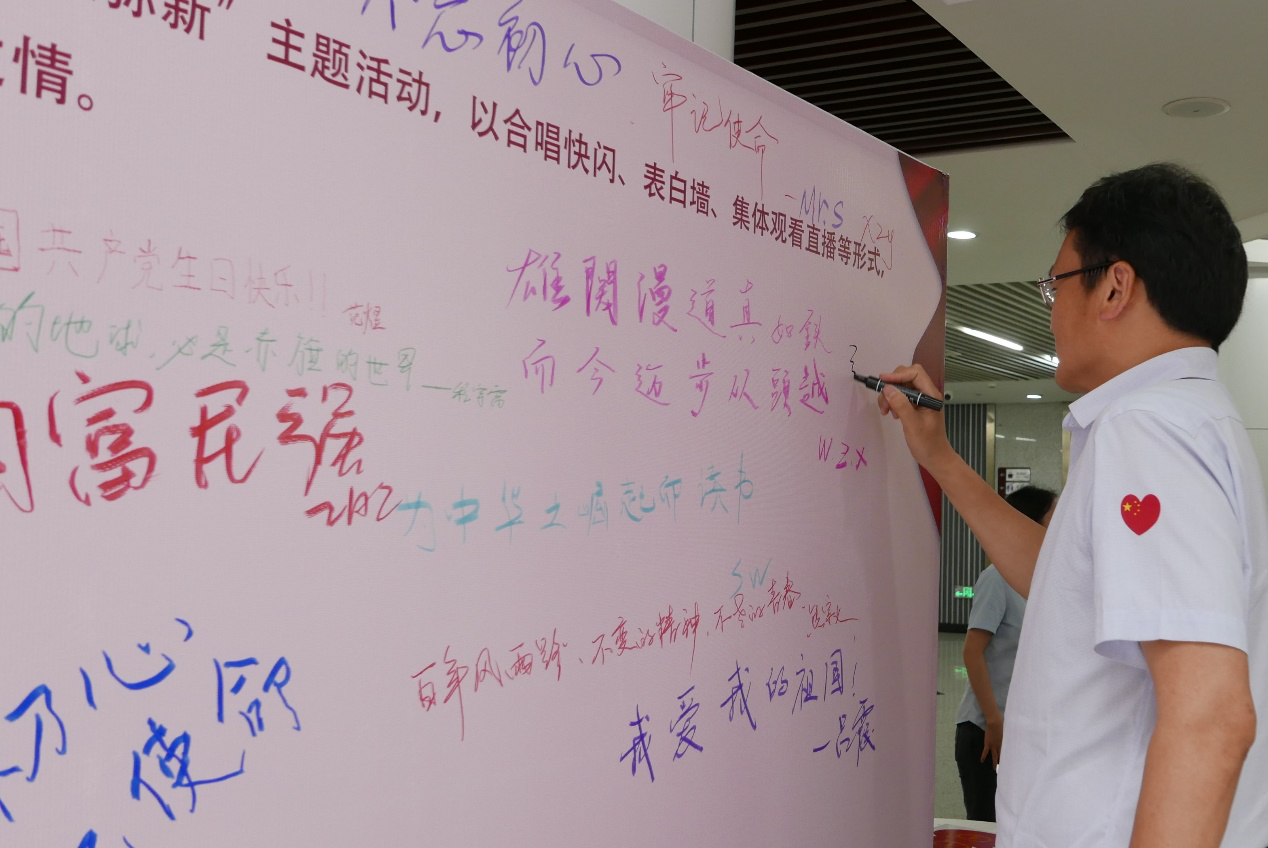 新”主题活动，以合唱快闪、表白墙、集体观看直播等形式，
情。
不忘初心
牢记使命
-Mrs
xzy
国共产党生日快乐!!
的地球，必是赤旗的世界
雄関漫道真如鉄
而今迈步从頭越
wzx
富民强
为中华之崛起而读书
SW
百年风雨路、不变的精神、不老的青春.
我爱我的祖国!
—吕震
初心
使